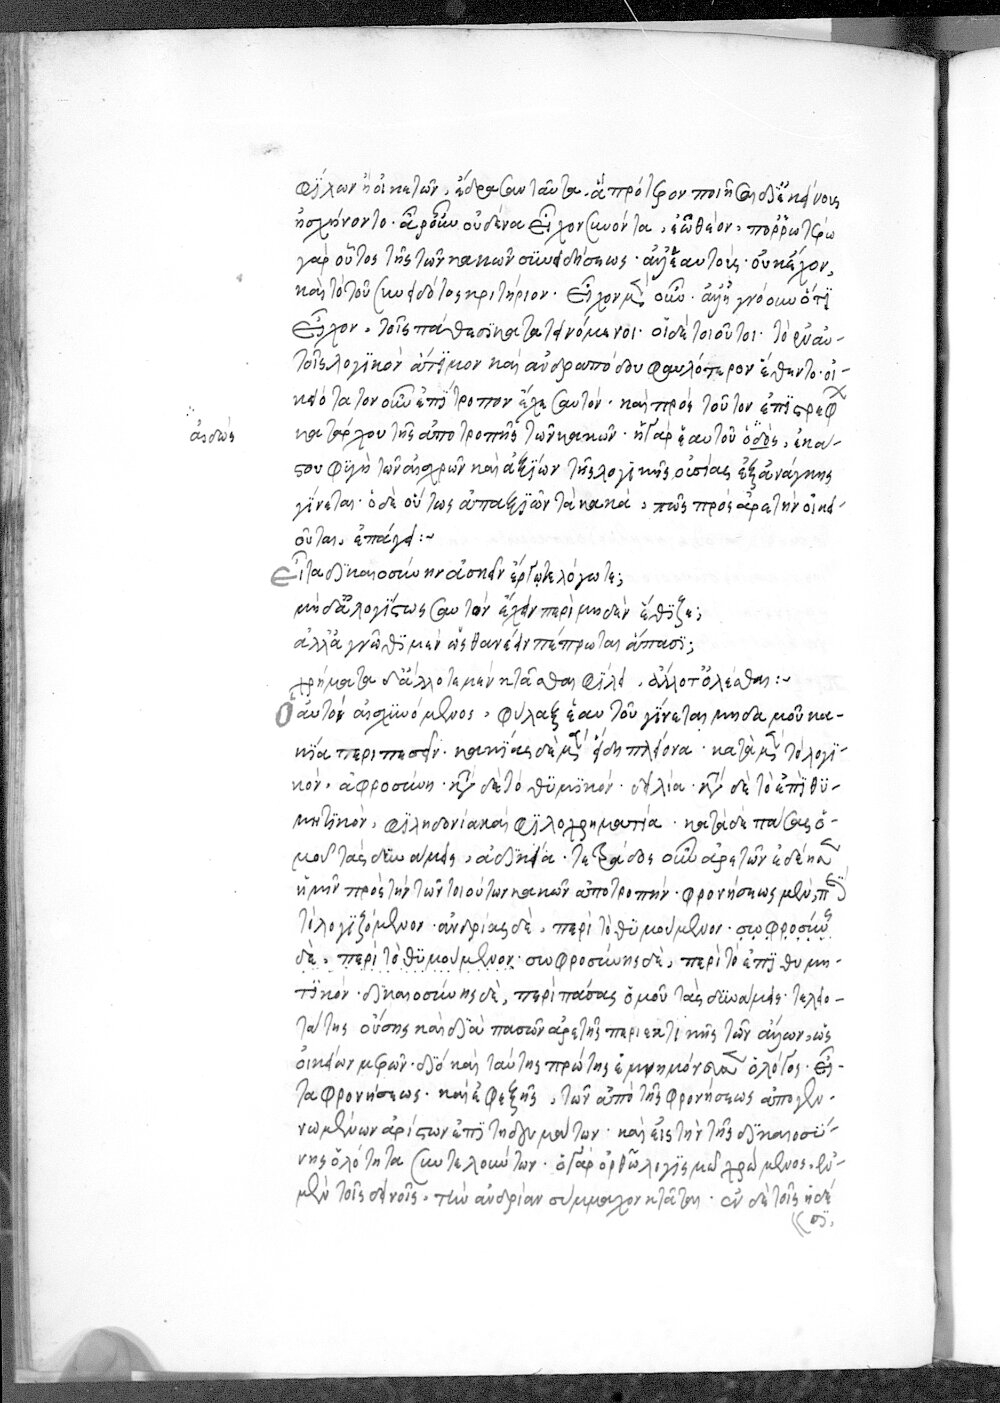 φίλων ἢ οἰκετῶν, ἔδρασαν ταῦτα, ἃ πρότερον ποιῆσαι δι' ἐκείνους
ᾐσχύνοντο. ἆρ' οὖν οὐδένα εἶχον συνόντα, ἐῶ θεὸν, πορρωτέρω
γὰρ οὗτος τῆς τῶν κακῶν συνειδήσεως. ἀλλ' ἑαυτοὺς οὐκ εἶχον,
καὶ τὸ τοῦ συνειδότος κριτήριον. εἶχον μὲν οὖν. ἀλλ' ἠγνόουν ὅτι
εἶχον, τοῖς πάθεσι κατατεινόμενοι. οἱ δὲ τοιοῦτοι τὸ ἐν αὐ-
τοῖς λογικὸν ἄτιμον καὶ ἀνδραπόδου φαυλότερον ἔθεντο. οἰ-
κειότατον οὖν ἐπίτροπον ἔχε σαυτὸν. καὶ πρὸς τοῦτον ἐπιστρεφ
κατάρχου τῆς ἀποτροπῆς τῶν κακῶν. ἡ γὰρ ἑαυτοῦ ὁδὸς, ἑκά-
στου φυγὴ τῶν αἰσχρῶν καὶ ἀναξίων τῆς λογικῆς οὐσίας ἐξ ἀνάγκης
γίνεται. ὁ δὲ οὕτως ἀπαξιῶν τὰ κακὰ, πῶς πρὸς ἀρετὴν οἰκει-
οῦται, ἐπάγει:~
αἰδώς
Εἶτα δικαιοσύνην ἀσκεῖν ἔργῳ τε λόγῳ τε;
μὴ δ' ἀλογίστως σαυτὸν ἔχειν περὶ μηδὲν ἔθιζε;
ἀλλὰ γνῶθι μὲν ὡς θανέειν πέπρωται ἅπασι;
χρήματα δ' ἄλλοτε μὲν κτᾶσθαι φιλεῖ, ἄλλοτ' ὀλέσθαι:~
Ὁ αὐτὸν αἰσχυνόμενος, φύλαξ ἑαυτοῦ γίνεται μηδαμοῦ κα-
κίᾳ περιπεσεῖν. κακίας δὲ μὲν εἴδη πλείονα. κατὰ μὲν τὸ λογι-
κόν, ἀφροσύνη. κατὰ δὲ τὸ θυμικόν. δειλία. κατὰ δὲ τὸ ἐπιθυ-
μητικόν, φιληδονία καὶ φιλοχρηματία. κατὰ δὲ πάσας ὁ-
μοῦ τὰς δυνάμεις, ἀδικία. τετράδος οὖν ἀρετῶν ἐδέησεν
ἡμῖν πρὸς τὴν τῶν τοιούτων κακῶν ἀποτροπήν. φρονήσεως μὲν, περὶ
τὸ λογιζόμενον. ἀνδρίας δὲ, περὶ τὸ θυμούμενον. σωφροσύνης
δὲ, περὶ τὸ θυμούμενον. σωφροσύνης δὲ, περὶ τὸ ἐπιθυμη-
τικόν. δικαιοσύνης δὲ, περὶ πάσας ὁμοῦ τὰς δυνάμεις. τελειο-
τάτης οὔσης καὶ διὰ πασῶν ἀρετῆς περιεκτικῆς τῶν ἄλλων, ὡς
οἰκείων μερῶν. διὸ καὶ ταύτης πρώτης ἐμνημόνευσεν ὁ λόγος. εἶ-
τα φρονήσεως. καὶ ἐφεξῆς, τῶν ἀπὸ τῆς φρονήσεως ἀπογεν-
νωμένων ἀρίστων ἐπιτηδευμάτων. καὶ εἰς τὴν τῆς δικαιοσύ-
νης ὁλότητα συντελούντων. ὁ γὰρ ὀρθῷ λογισμῷ χρώμενος, ἐν
μὲν τοῖς δεινοῖς, τὴν ἀνδρίαν σύμμαχον κτᾶται. ἐν δὲ τοῖς ἡδέ
σι,